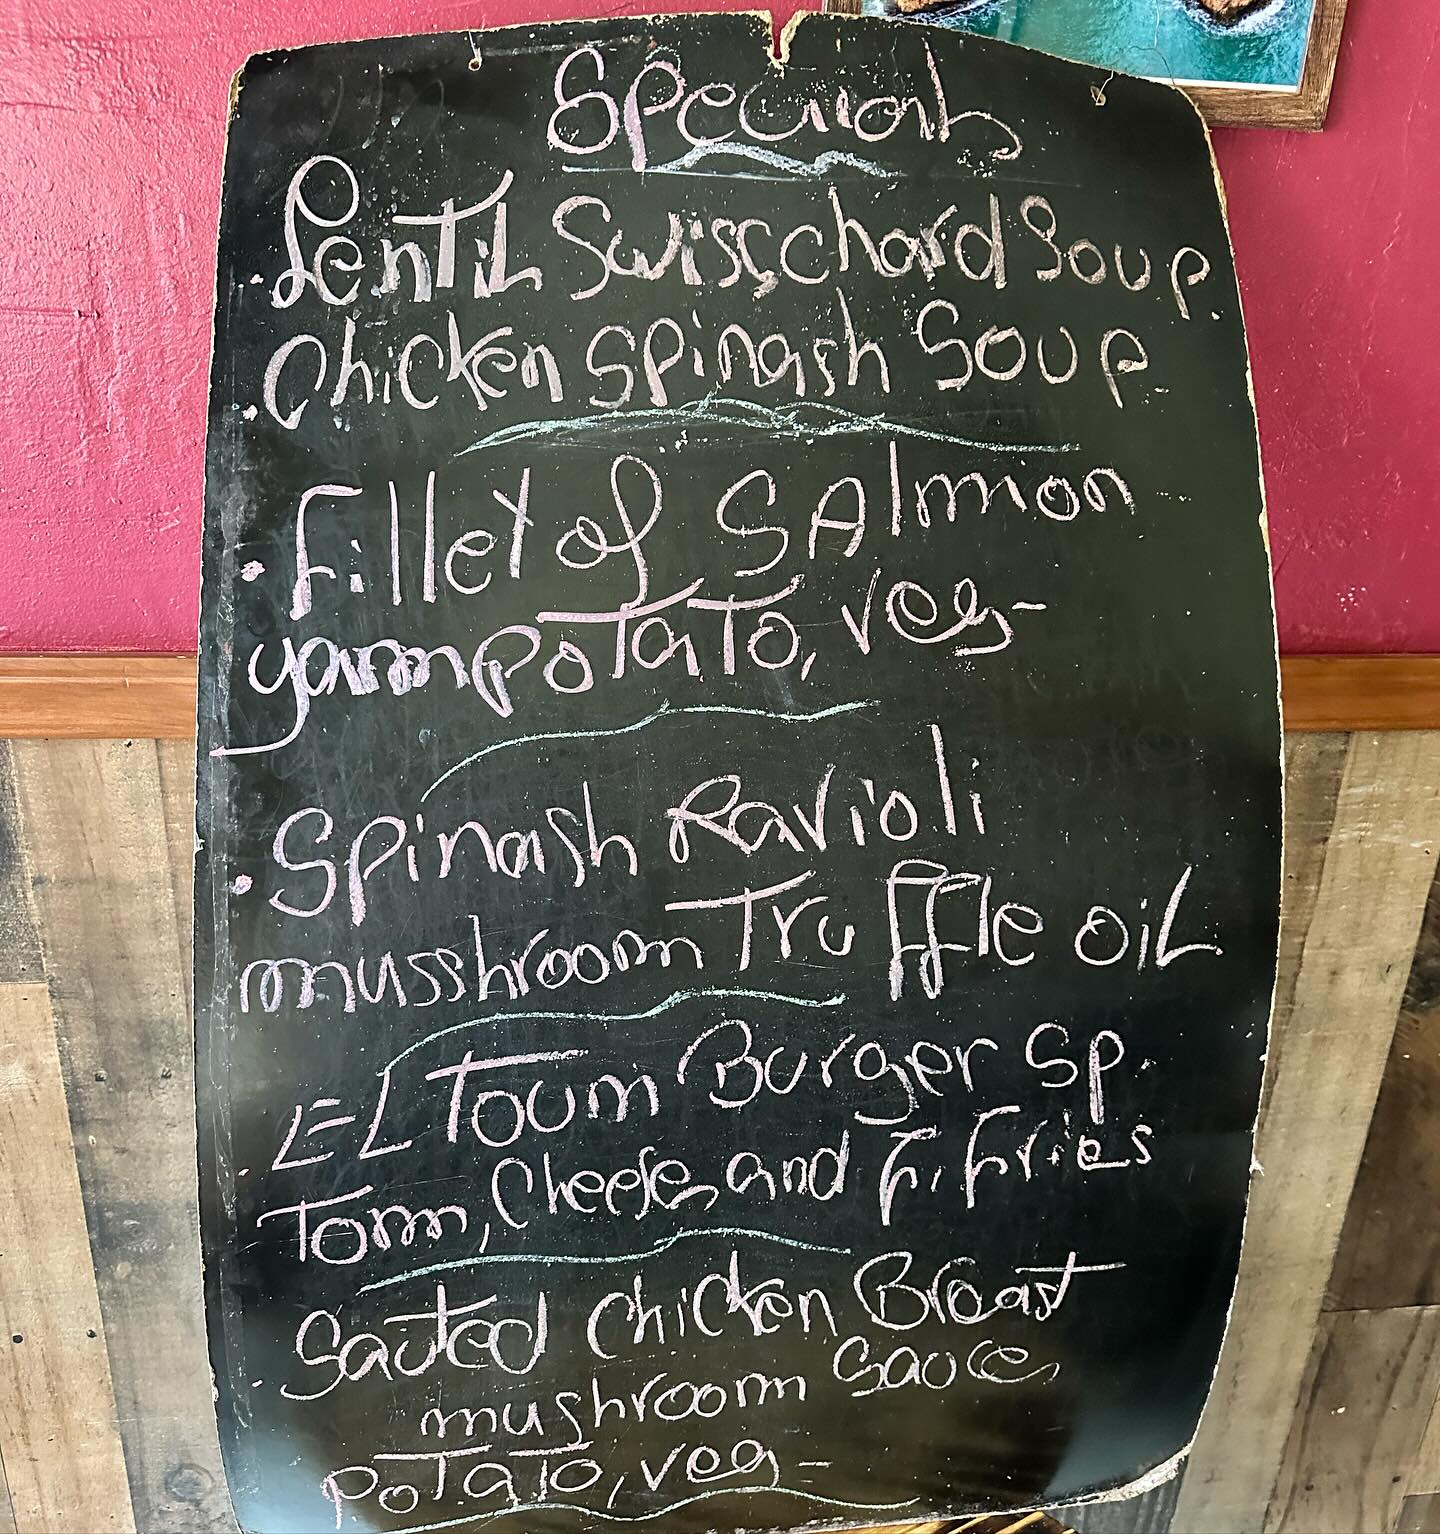 Specials
Lentil Swisschard Soup.
Chicken Spinash Soup.
Fillet of SAlmon
yampotato, veg-
Spinash Ravioli
musshroom Truffle oil
EL Toum Burger Sp.
Tom, Cheese, and F. Fries
Sauted Chicken Breast
mushroom Sauce,
Potato, veg-